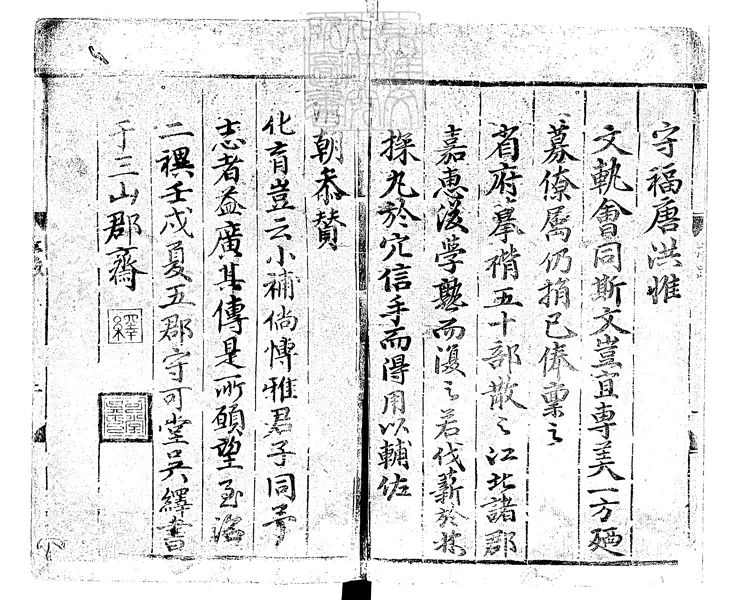 守福唐洪惟
文軌會同斯文豈宜專美一方廼
募僚屬仍捐己俸稟之
省府摹褙五十部散之江北諸郡
嘉惠後學聽而復之若伐薪於林
探丸於穴信手而得用以輔佐
朝參贊
化育豈云小補倘博雅君子同予
志者益廣其傳是所願望至治
二禩壬戌夏五郡守可堂吳繹書
于三山郡齋
繹